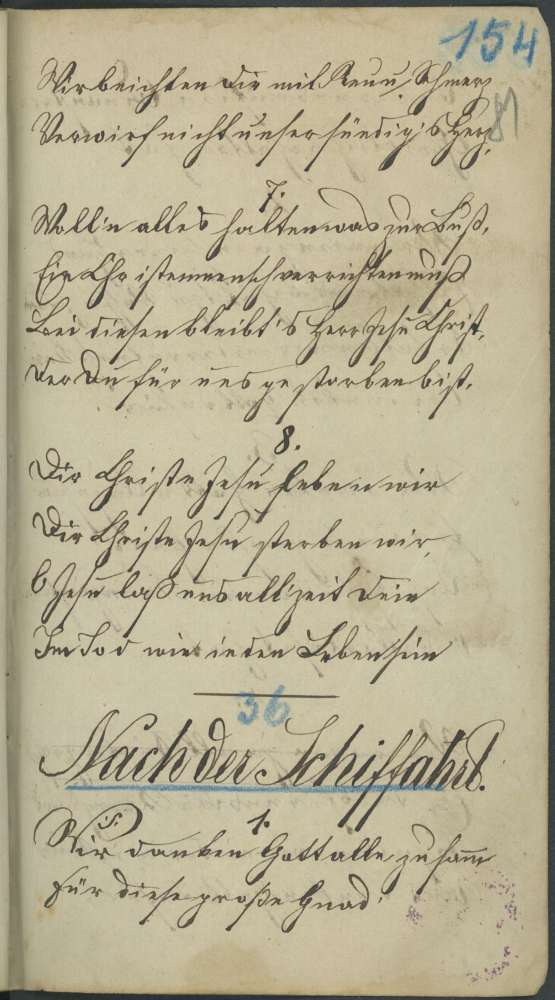 154
Wir beichten dir mit Reu u. Schmerz
81
Verwirf nicht unser sündig's Herz,
7.
Woll'n alles halten was zur Buß,
Ein Christenmensch verrichten muß
Bei diesen bleibt's Herr Jesu Christ,
Der Du für uns gestorben bist.
8.
Dir Christe Jesu leben wir
Dir Christe Jesu sterben wir,
O Jesu laß uns all'zeit Dein
Im Tod wie in den Leben sein
36
Nach der Schiffahrt.
1.
Wir danken Gott alle zusamm
Für diese große Gnad'